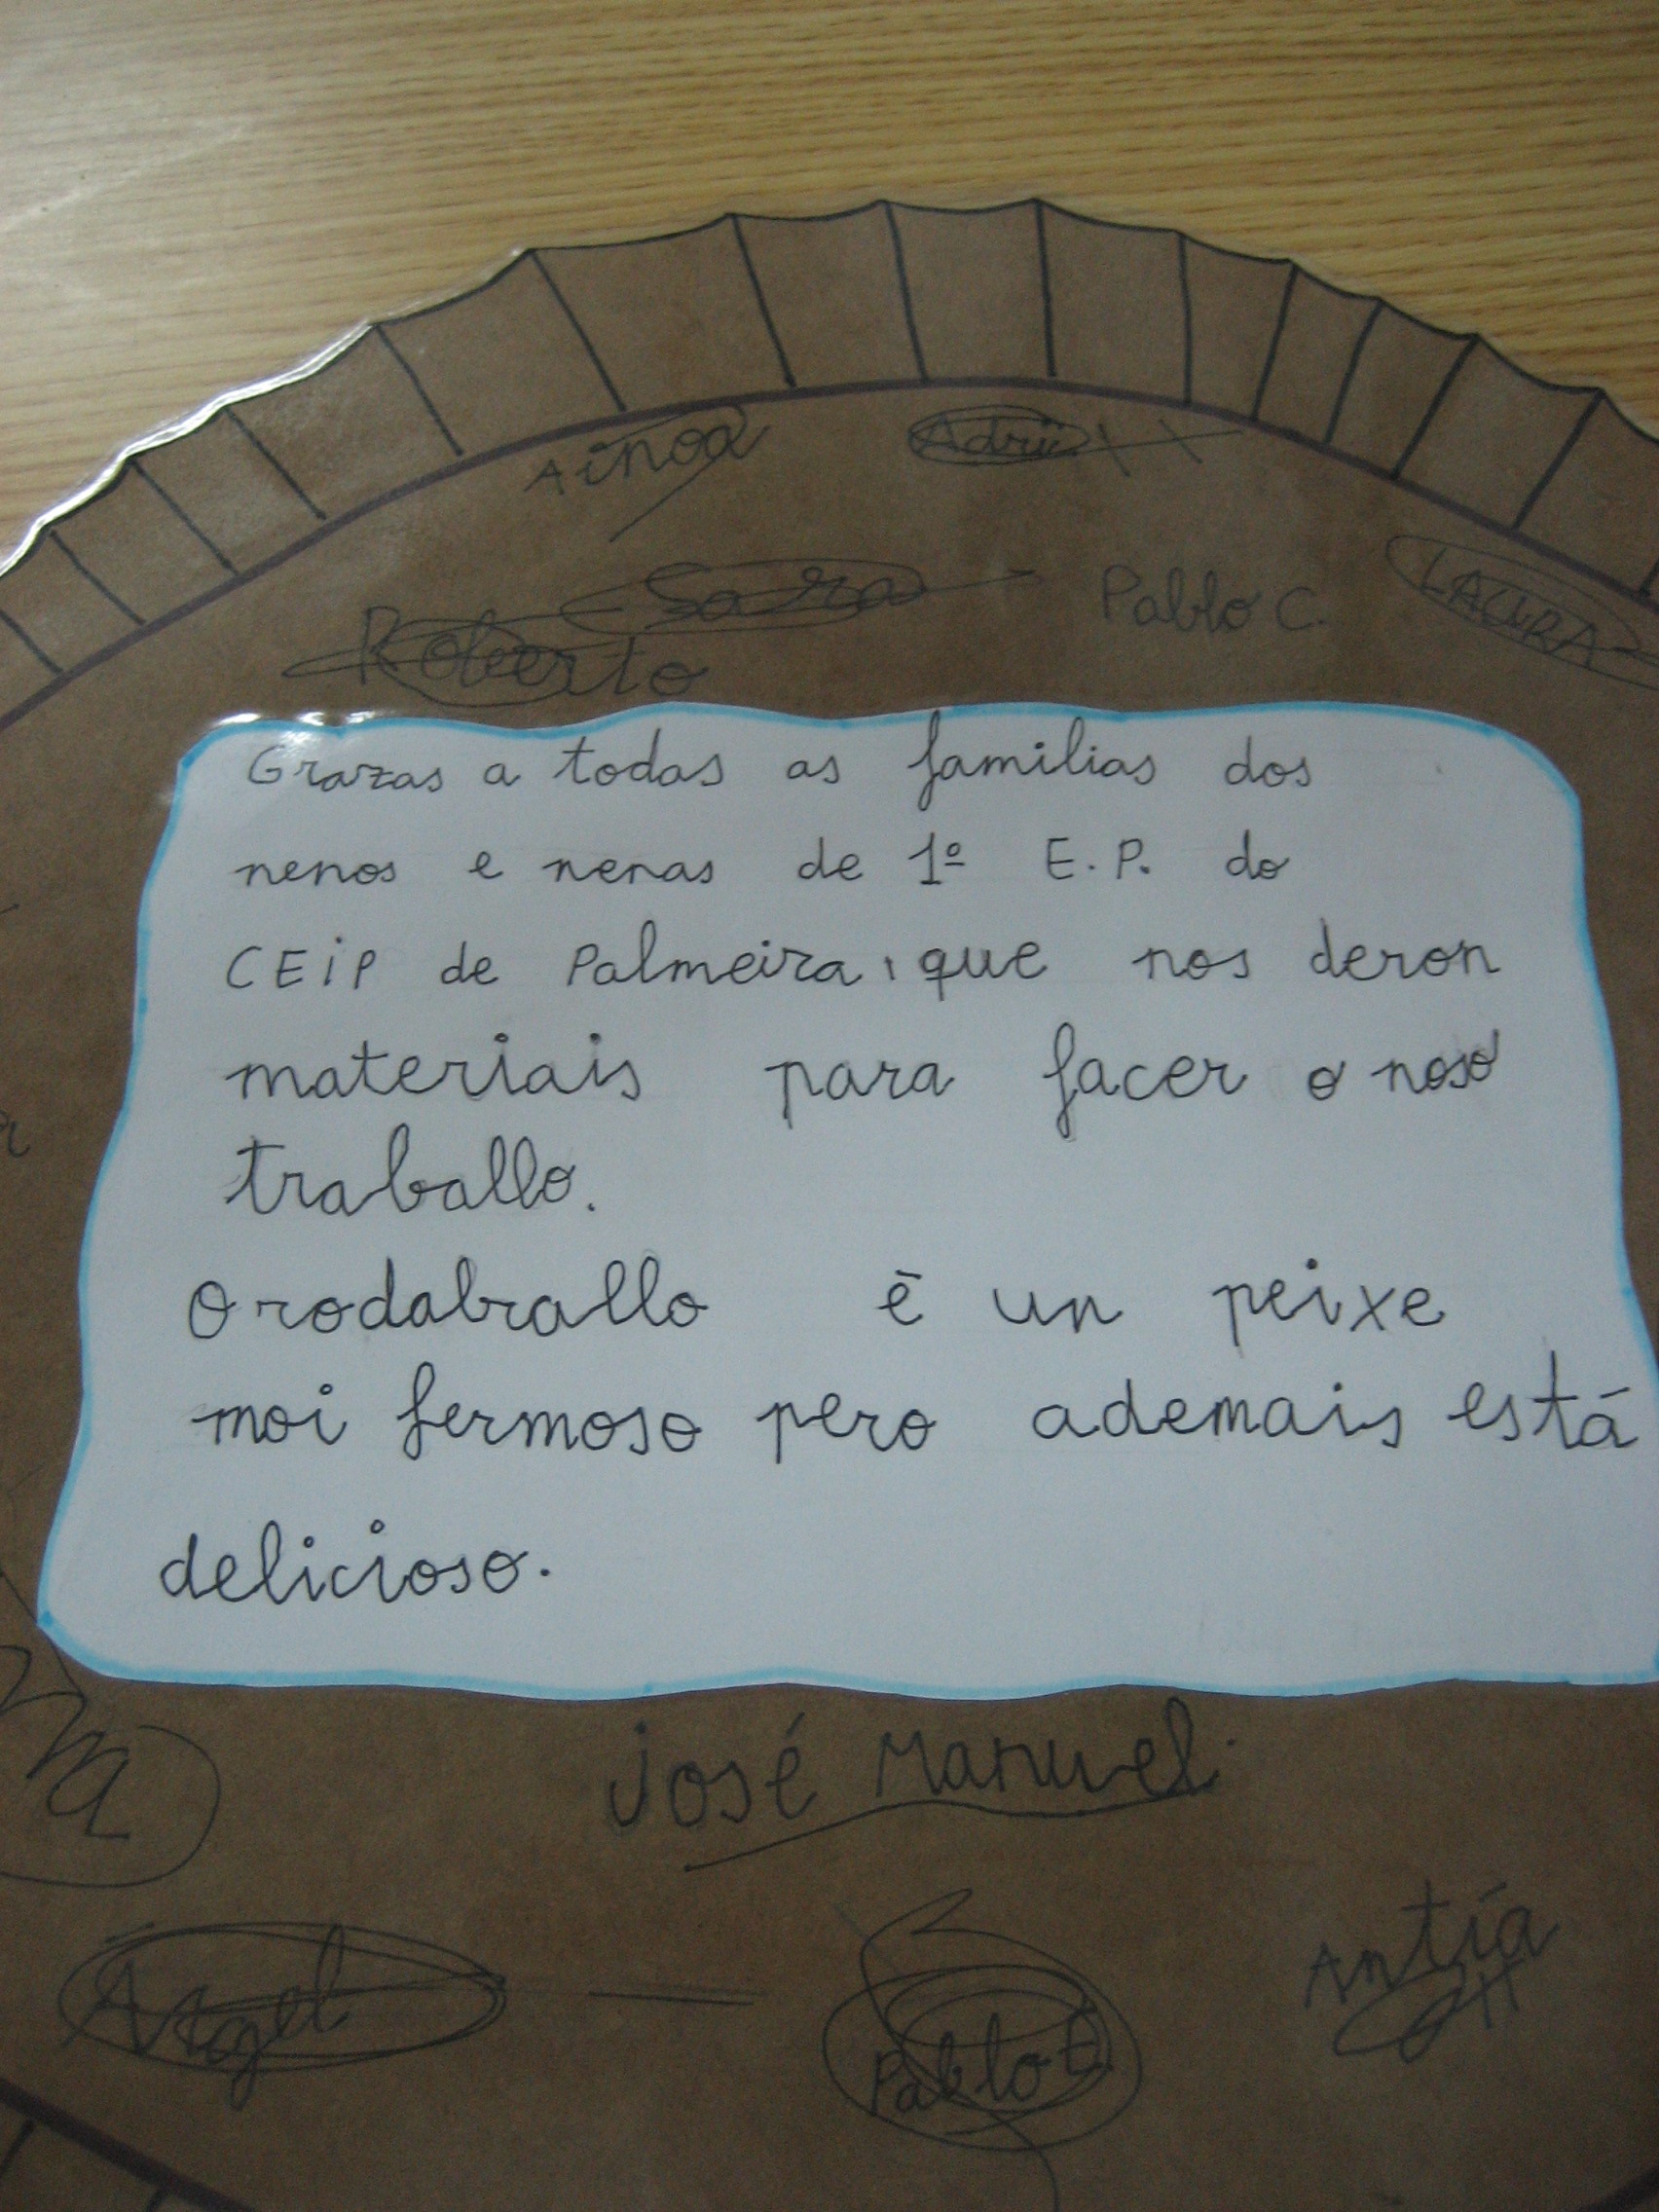 Ainoa Adrii
Sara Pablo C. LAURA
Roberto
Grazas a todas as familias dos
nenos e nenas de 1º E.P. do
CEiP de Palmeira, que nos deron
materiais para facer o noso
traballo.
O rodaballo é un peixe
moi fermoso pero ademais está
delicioso.
José Manuel
Angel Pablo E. Antía